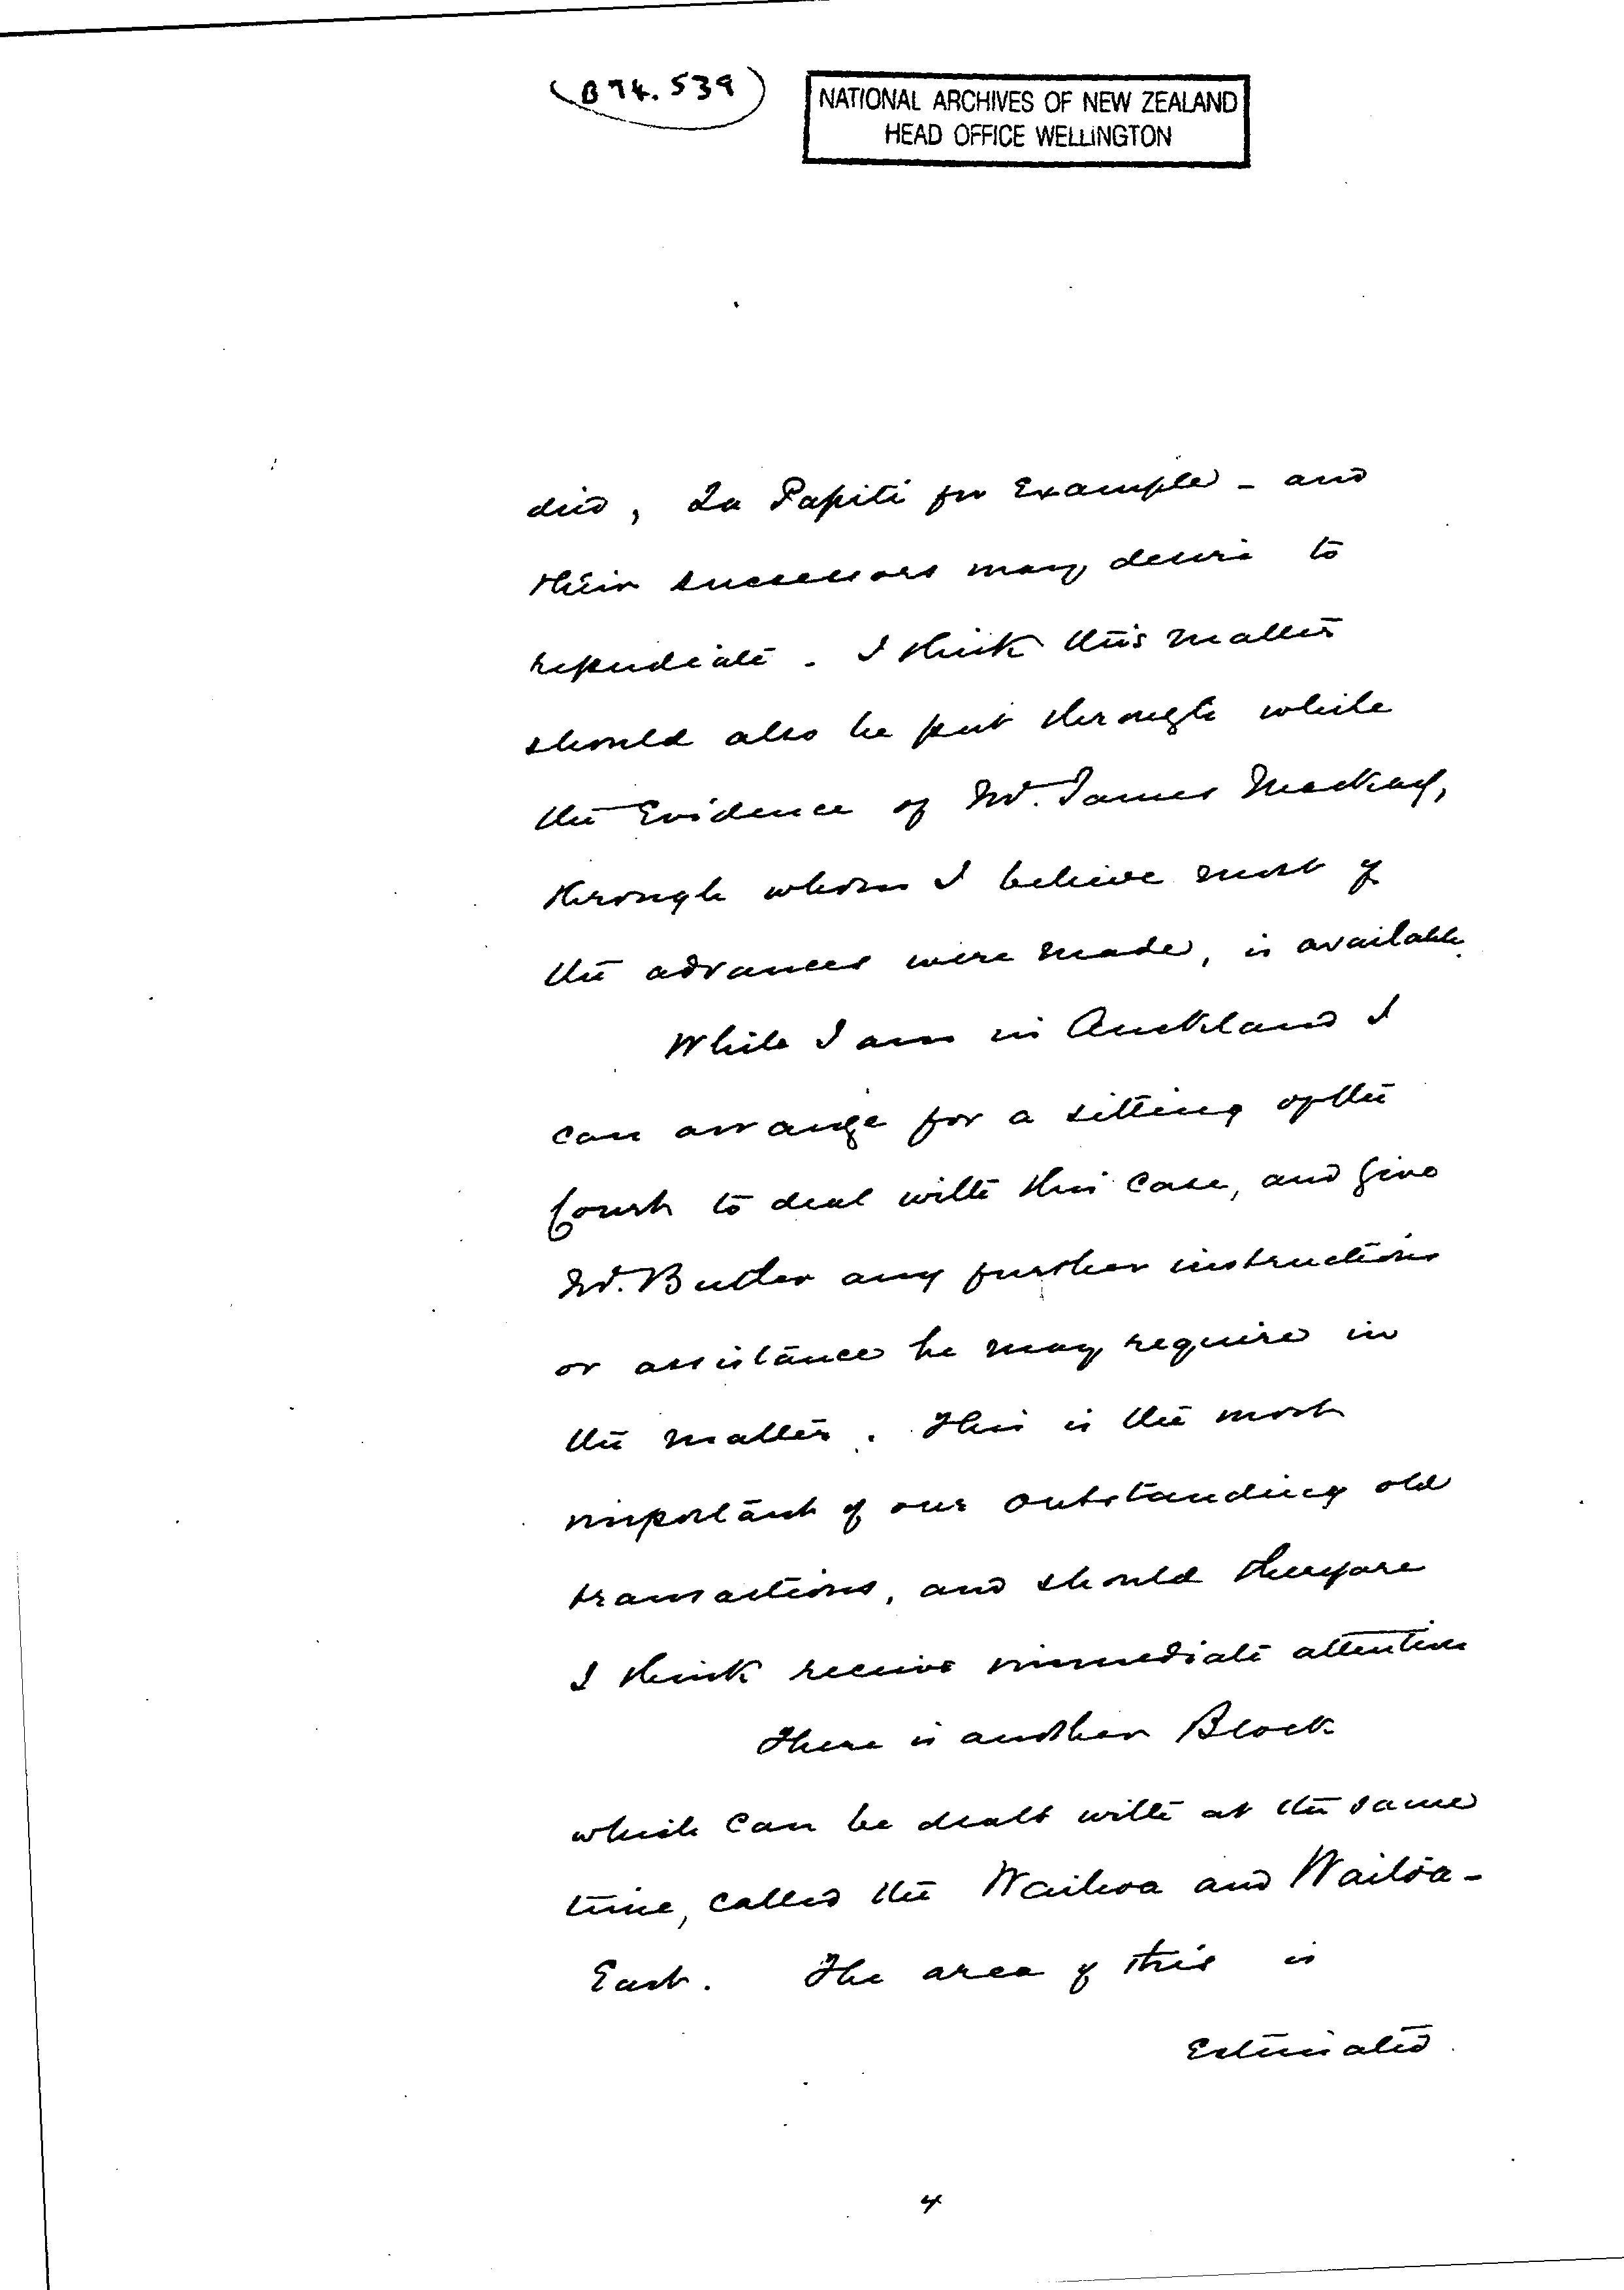 (B 94.539)
NATIONAL ARCHIVES OF NEW ZEALAND
HEAD OFFICE WELLINGTON
died, Ta Papiti for Example - and
their successors may desire to
repudiate. I think this matter
should also be put through while
the Evidence of Mr. James Mackay,
through whom I believe most of
the advances were made, is available.
While I am in Auckland I
can arrange for a sitting of the
Court to deal with this Case, and give
Mr. Butler any further instructions
or assistance he may require in
the matter. This is the most
important of our outstanding old
transactions, and should therefore
I think receive immediate attention
There is another Block
which can be dealt with at the same
time, called the Waihoa and
East. The area of this is
Estimated
4